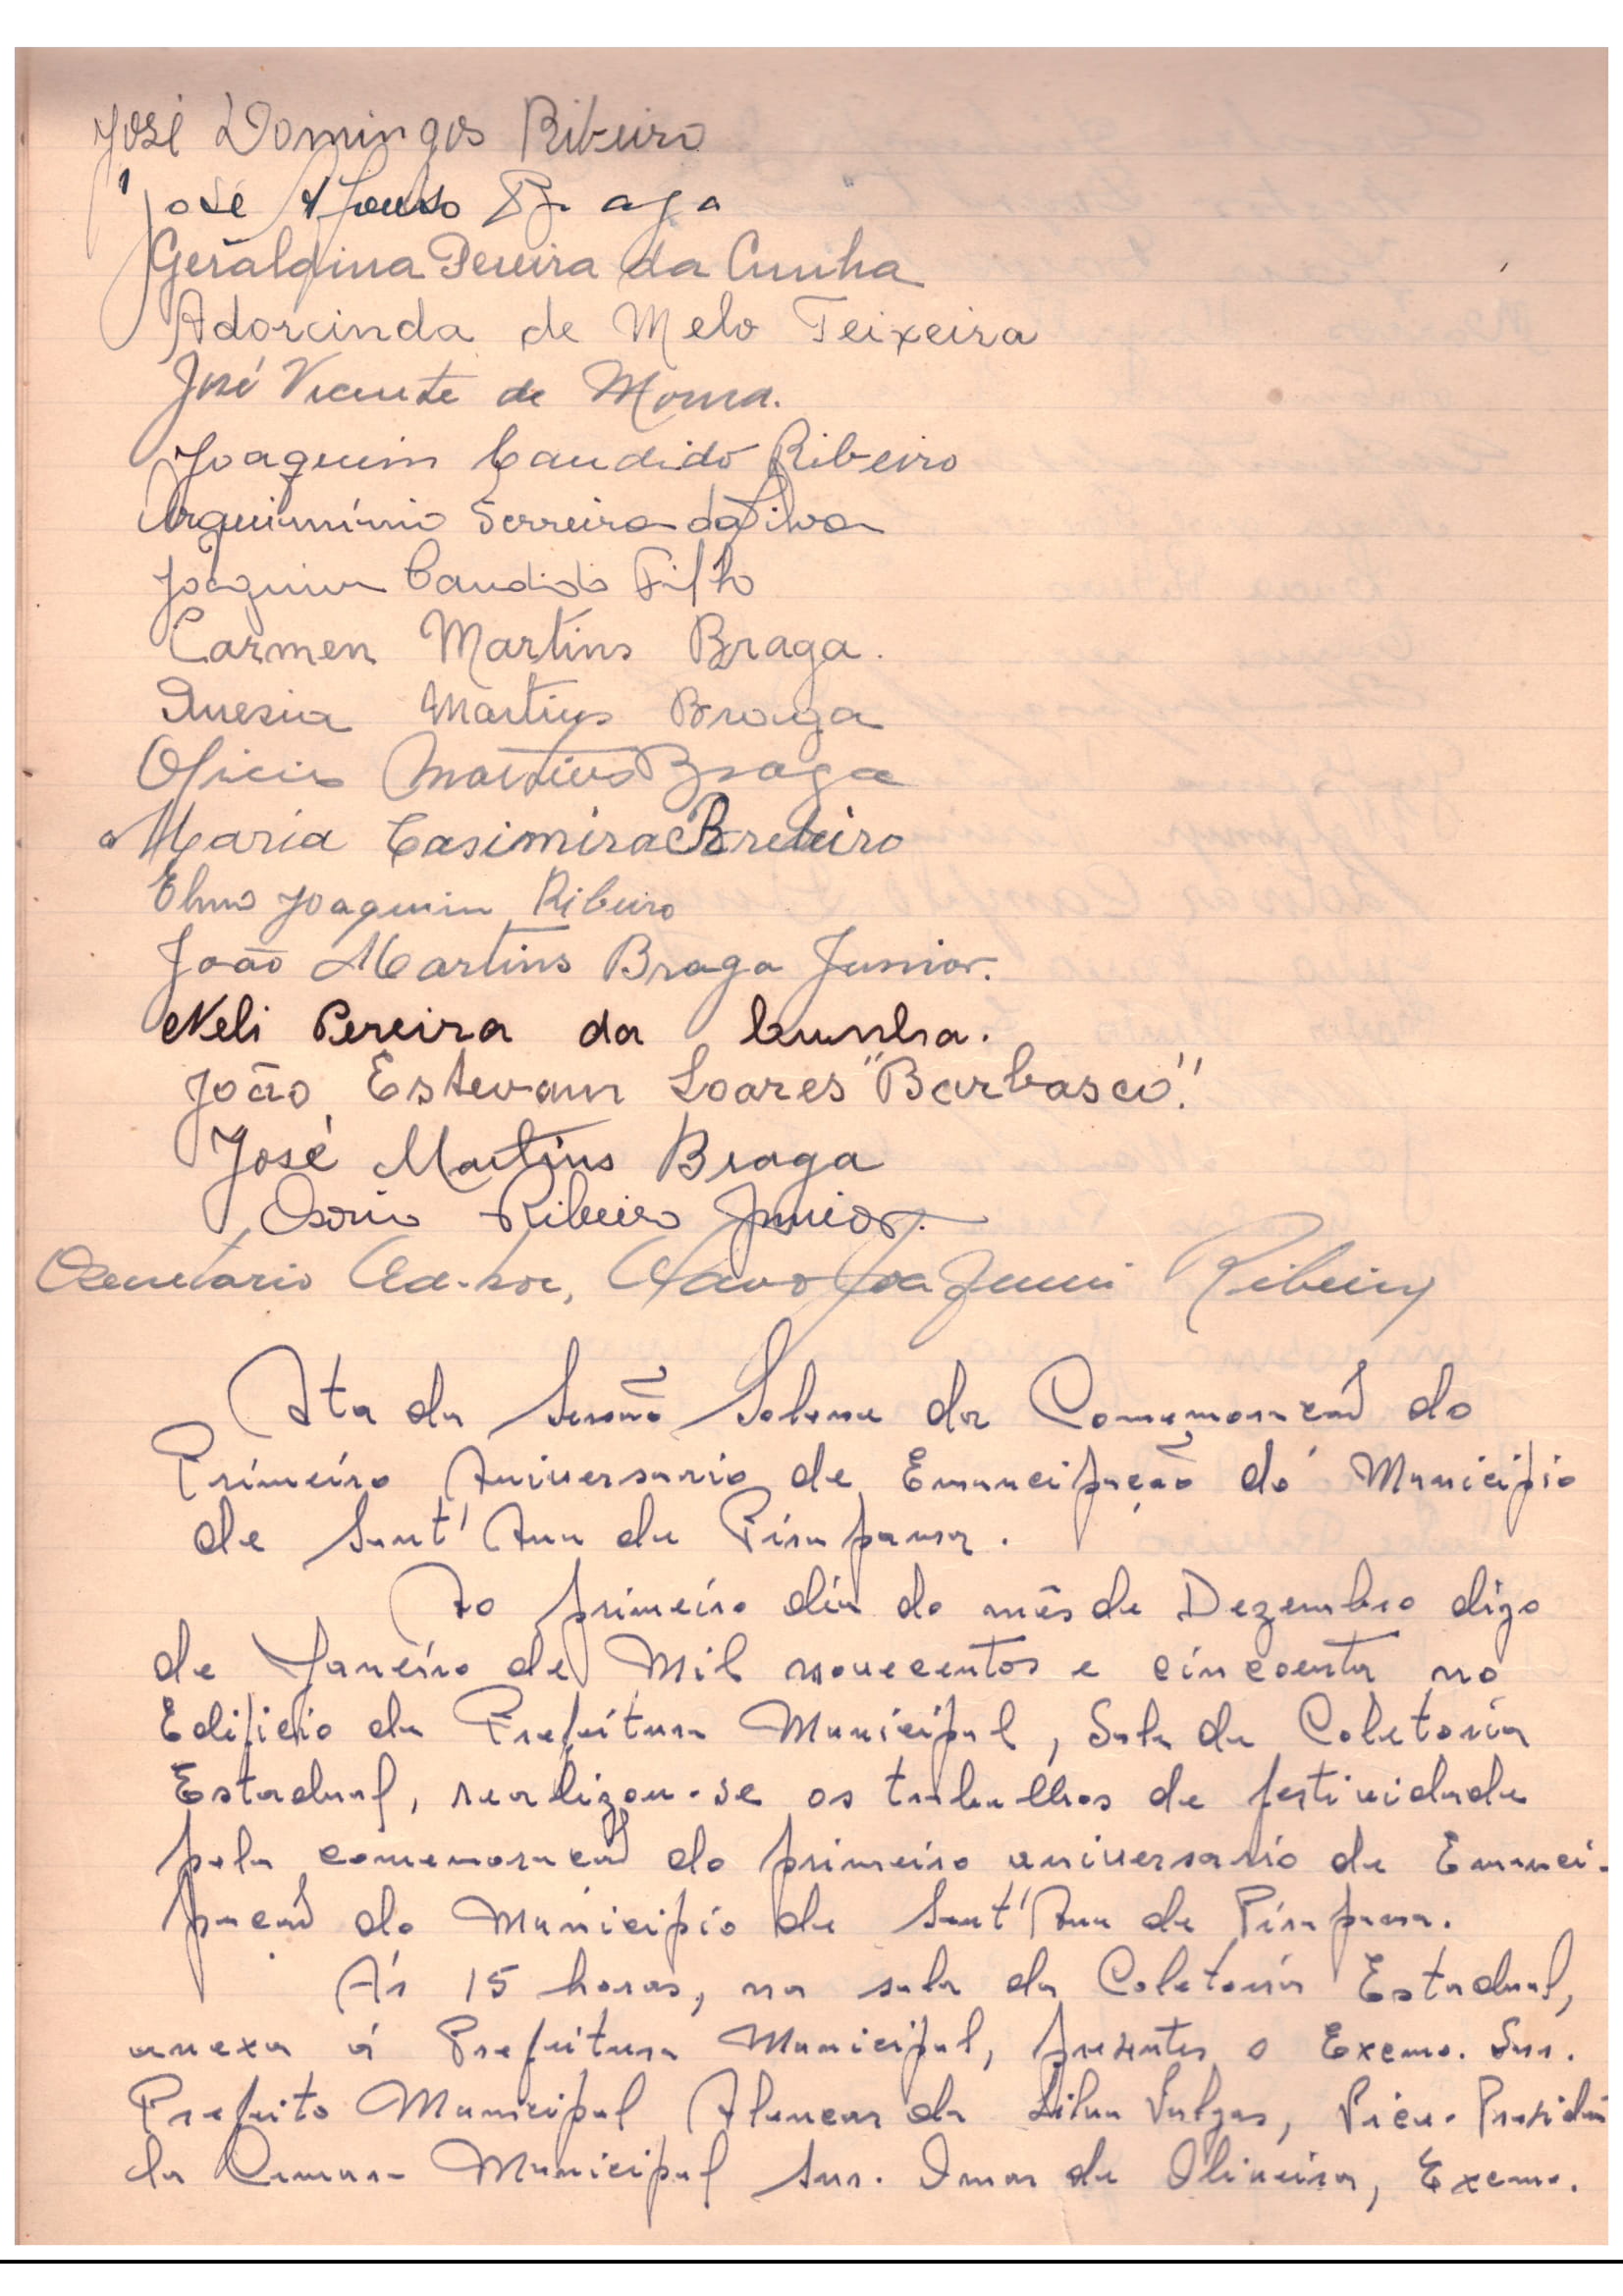 José Domingos Ribeiro
José Afonso Braga
Geraldina Pereira da Cunha
Adorcinda de Melo Teixeira
José Vicente de Moura.
Joaquim Candido Ribeiro
Arquimínio Ferreira da Silva
Joaquim Candido Filho
Carmen Martins Braga.
Inesia Martins Braga
Martins Braga
Maria Casimira Ribeiro
Elmo Joaquim Ribeiro
João Martins Braga Junior.
Neli Pereira da Cunha.
João Estevam Soares "Barbasco".
José Martins Braga
Osorio Ribeiro Junior.
Ribeiro
Ata da Sessão Solene da Comemoração do
Primeiro Aniversario de Emancipação do Municipio
de Sant'Ana de Pirapama.
Ao primeiro dia do mês de Dezembro digo
de Janeiro de Mil novecentos e cincoenta no
Edificio da Prefeitura Municipal, Sala da Coletoria
Estadual, realizou-se os trabalhos de festividade
pela comemoração do primeiro aniversario da Emanci-
pação do Municipio de Sant'Ana de Pirapama.
Ás 15 horas, na sala da Coletoria Estadual,
anexa á Prefeitura Municipal, presentes o Exemo. Snr.
Prefeito Municipal Alencar da Silva Vulgas, Vice-Presiden
da Camara Municipal Snr. Imar de Oliveira, Exemo.